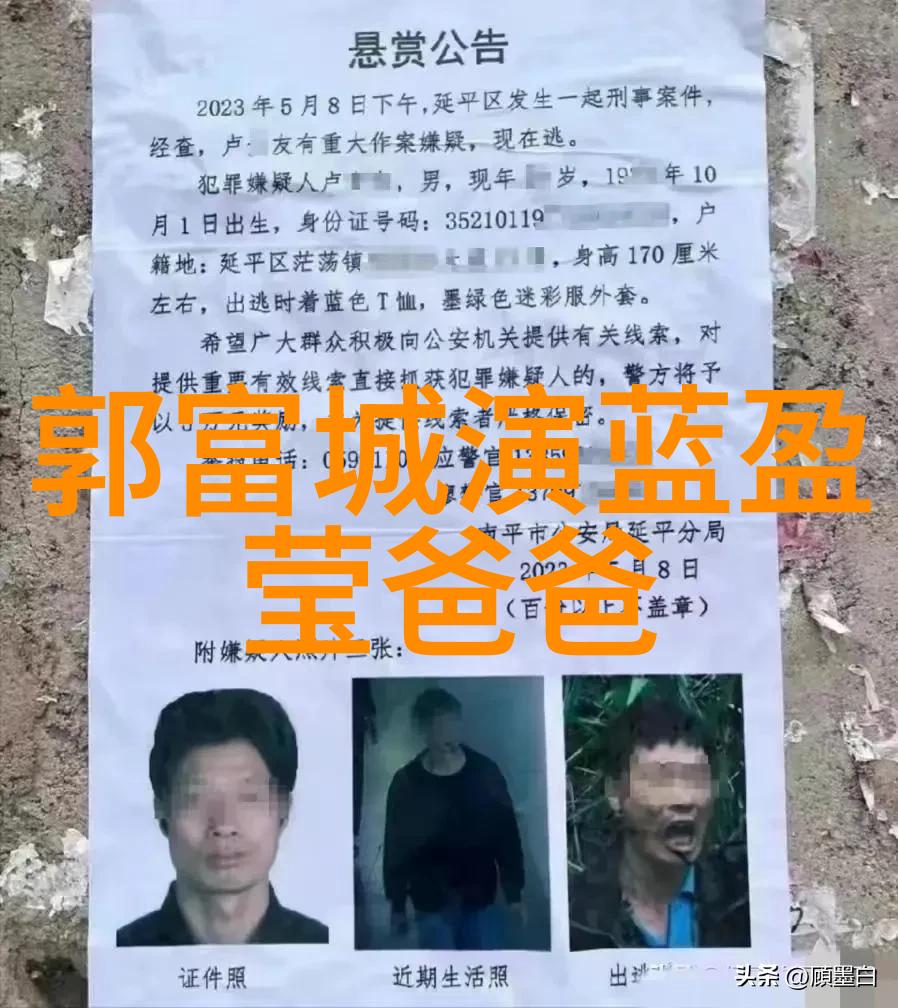 悬赏公告
2023年5月8日下午,延平区发生一起刑事案件,
经查,卢 友有重大作案嫌疑,现在逃。
犯罪嫌疑人卢 ,男,现年 岁,19 年10
月1日出生,身份证号码:35210119 ,户
籍地:延平区茫荡镇 ,身高170厘米
左右,出逃时着蓝色T恤,墨绿色迷彩服外套。
希望广大群众积极向公安机关提供有关线索,对
提供重要有效线索直接抓获犯罪嫌疑人的,警方将予
郭富城演蓝盈
莹爸爸
以 线索者严格保密。
电话: 应警官
南平市公安局延平分局
5月8日
盖章)
附嫌疑人 张:
证件照
近期生活照
出逃
头条 @顾墨白